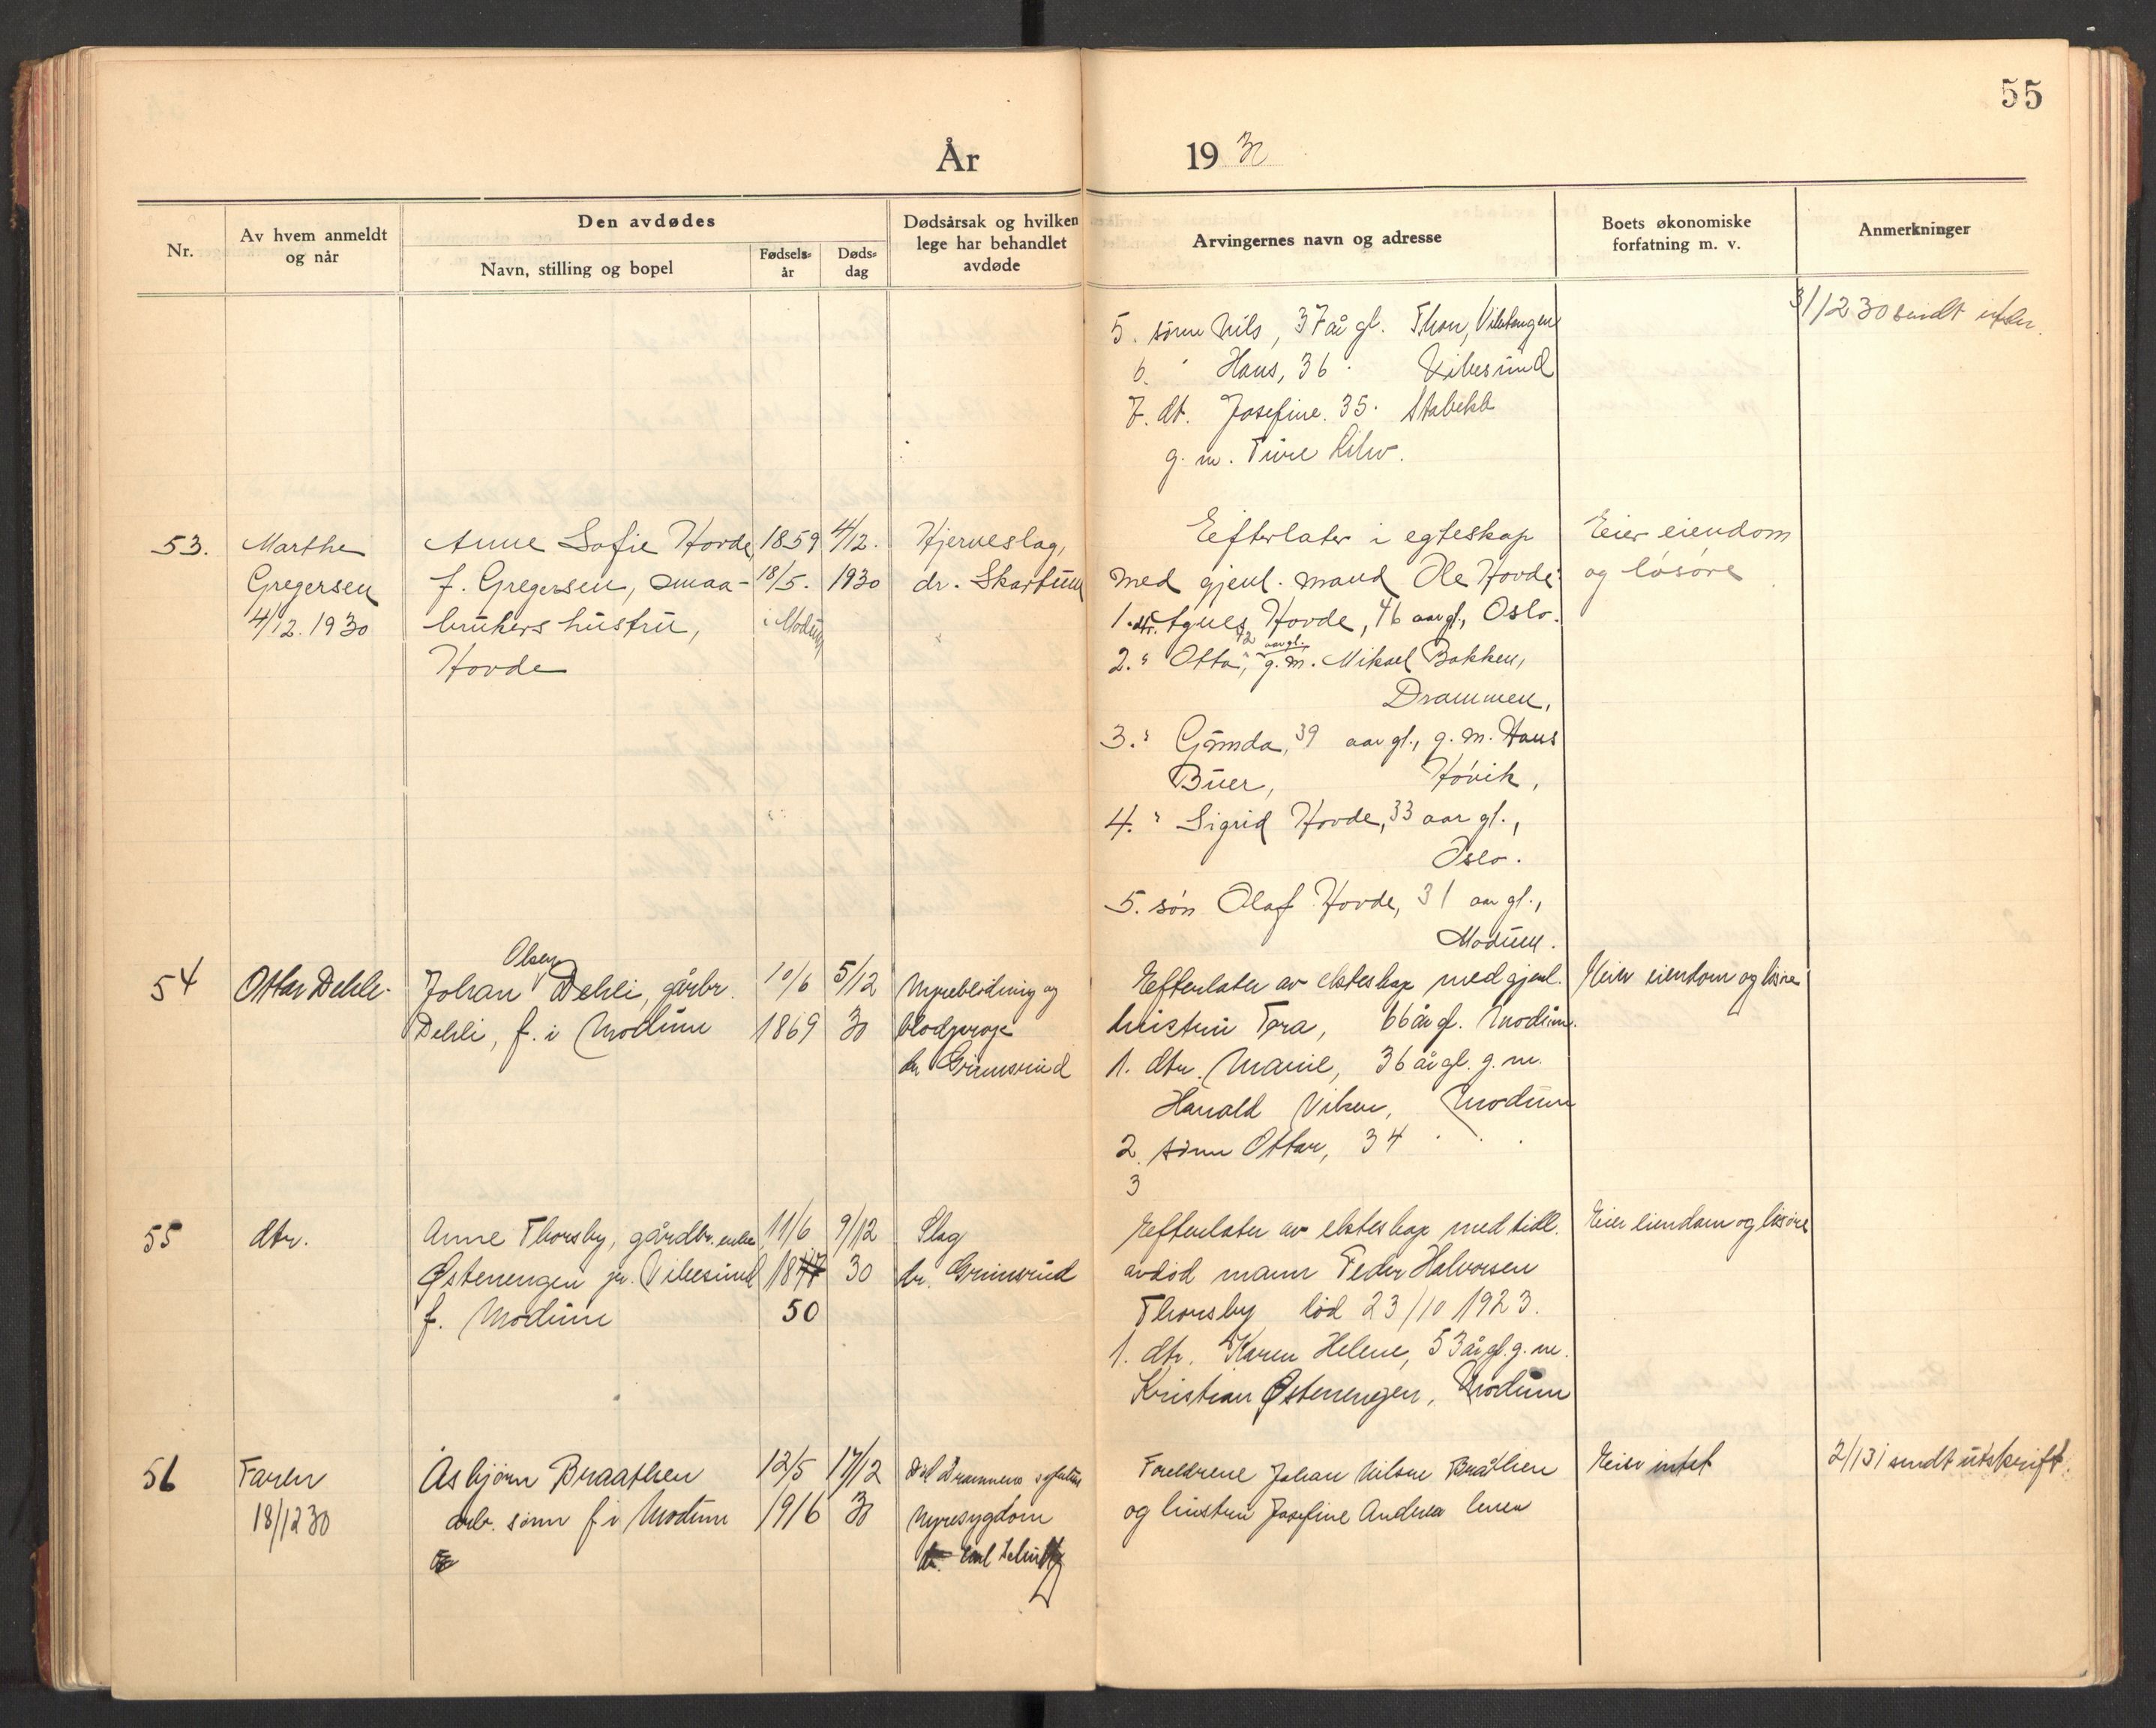 55
År 1930
Nr.
Av hvem anmeldt
og når
Den avdødes
Navn, stilling og bopel
Fødsels-
år
Døds-
dag
Dødsårsak og hvilken
lege har behandlet
avdøde
Arvingernes navn og adresse
Boets økonomiske
forfatning m. v.
Anmerkninger
5. sønn Nils, 37 år gl. Thon,
6. " Hans, 36 " Vikesund
7. dt. Josefine. 35. Stabekk
g. m.
31/12 30 sendt
53.
Marthe
Gregersen
4/12. 1930
Anne Sofie Hovde,
f. Gregersen, smaa-
brukers hustru,
Hovde
1859
18/5.
i Modum
4/12.
1930
Hjerneslag,
dr. Skartum
Eifterlater i egteskap
med gjenl. mand Ole Hovde:
1. dtr. Agnes Hovde, 46 aar gl., Oslo.
2. " Otta, 42 aar gl. g. m. Mikael Bakken,
Drammen,
3. " Gunda, 39 aar gl., g. m. Hans
Buer, Høvik,
4. " Sigrid Hovde, 33 aar gl.,
Oslo.
5. søn Olaf Hovde, 31 aar gl.,
Modum.
Eier eiendom
og løsøre
54
Ottar Dehli.
Olsen
Johan Dehli, gårbr.
Dehli, f. i Modum
10/6
1869
5/12
30
Nyreblødning og
blodpropp
dr Grimsrud
Efterlater av ekteskap med gjenl.
hustru Tora, 66 år gl. Modum.
1. dtr. Marie, 36 år gl. g. m.
Harald Viken, Modum
2. sønn Ottar, 34 " " "
3
Eier eiendom og løsøre
55
dtr.
Anne Thorsby, gårdbr. enke
Østenengen pr. Vikesund
f. Modum
11/6
18
50
9/12
30
Slag
dr. Grimsrud
Efterlater av ekteskap med tidl.
avdød mann Peder Halvorsen
Thorsby død 23/10 1923.
1. dtr. Karen Helene, 53 år gl. g. m.
Kristian Østenengen, Modum
Eier eiendom og løsøre
56
Faren
18/12 30
Asbjørn Braathen
arb. sønn f i Modum
12/5
1916
17/12
30
Drammens sykehus
Nyresygdom
Foreldrene Johan Nilsen Bråthen
og hustru Josefine Andrea
Eier intet
2/1 31 sendt utskrift.